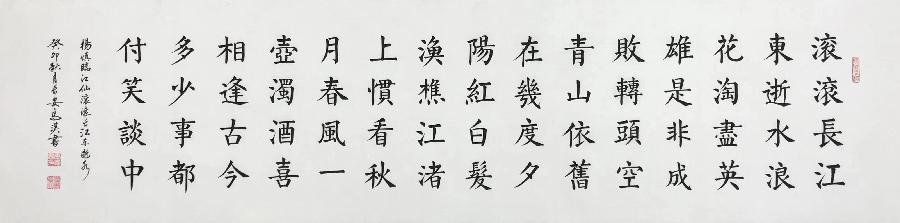 滾滾長江
東逝水浪
花淘盡英
雄是非成
敗轉頭空
青山依舊
在幾度夕
陽紅白髮
漁樵江渚
上慣看秋
月春風一
壺濁酒喜
相逢古今
多少事都
付笑談中
楊慎臨江仙滾滾長江東逝水
癸卯秋月書